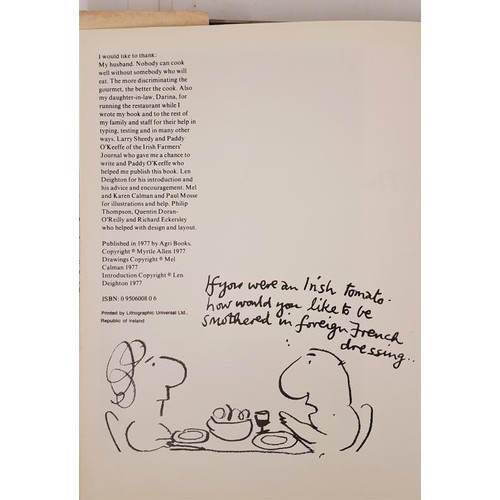 I would like to thank:
My husband. Nobody can cook
well without somebody who will
eat. The more discriminating the
gourmet, the better the cook. Also
my daughter-in-law, Darina, for
running the restaurant while I
wrote my book and to the rest of
my family and staff for their help in
typing, testing and in many other
ways. Larry Sheedy and Paddy
O'Keeffe of the Irish Farmers'
Journal who gave me a chance to
write and Paddy O'Keeffe who
helped me publish this book. Len
Deighton for his introduction and
his advice and encouragement. Mel
and Karen Calman and Paul Mosse
for illustrations and help. Philip
Thompson, Quentin Doran-
O'Reilly and Richard Eckersley
who helped with design and layout.
Published in 1977 by Agri Books.
Copyright © Myrtle Allen 1977
Drawings Copyright © Mel
Calman 1977
Introduction Copyright © Len
Deighton 1977
ISBN: 0 9506008 0 6
Printed by Lithographic Universal Ltd.,
Republic of Ireland
If you were an Irish tomato.
how would you like to be
smothered in foreign French
dressing..